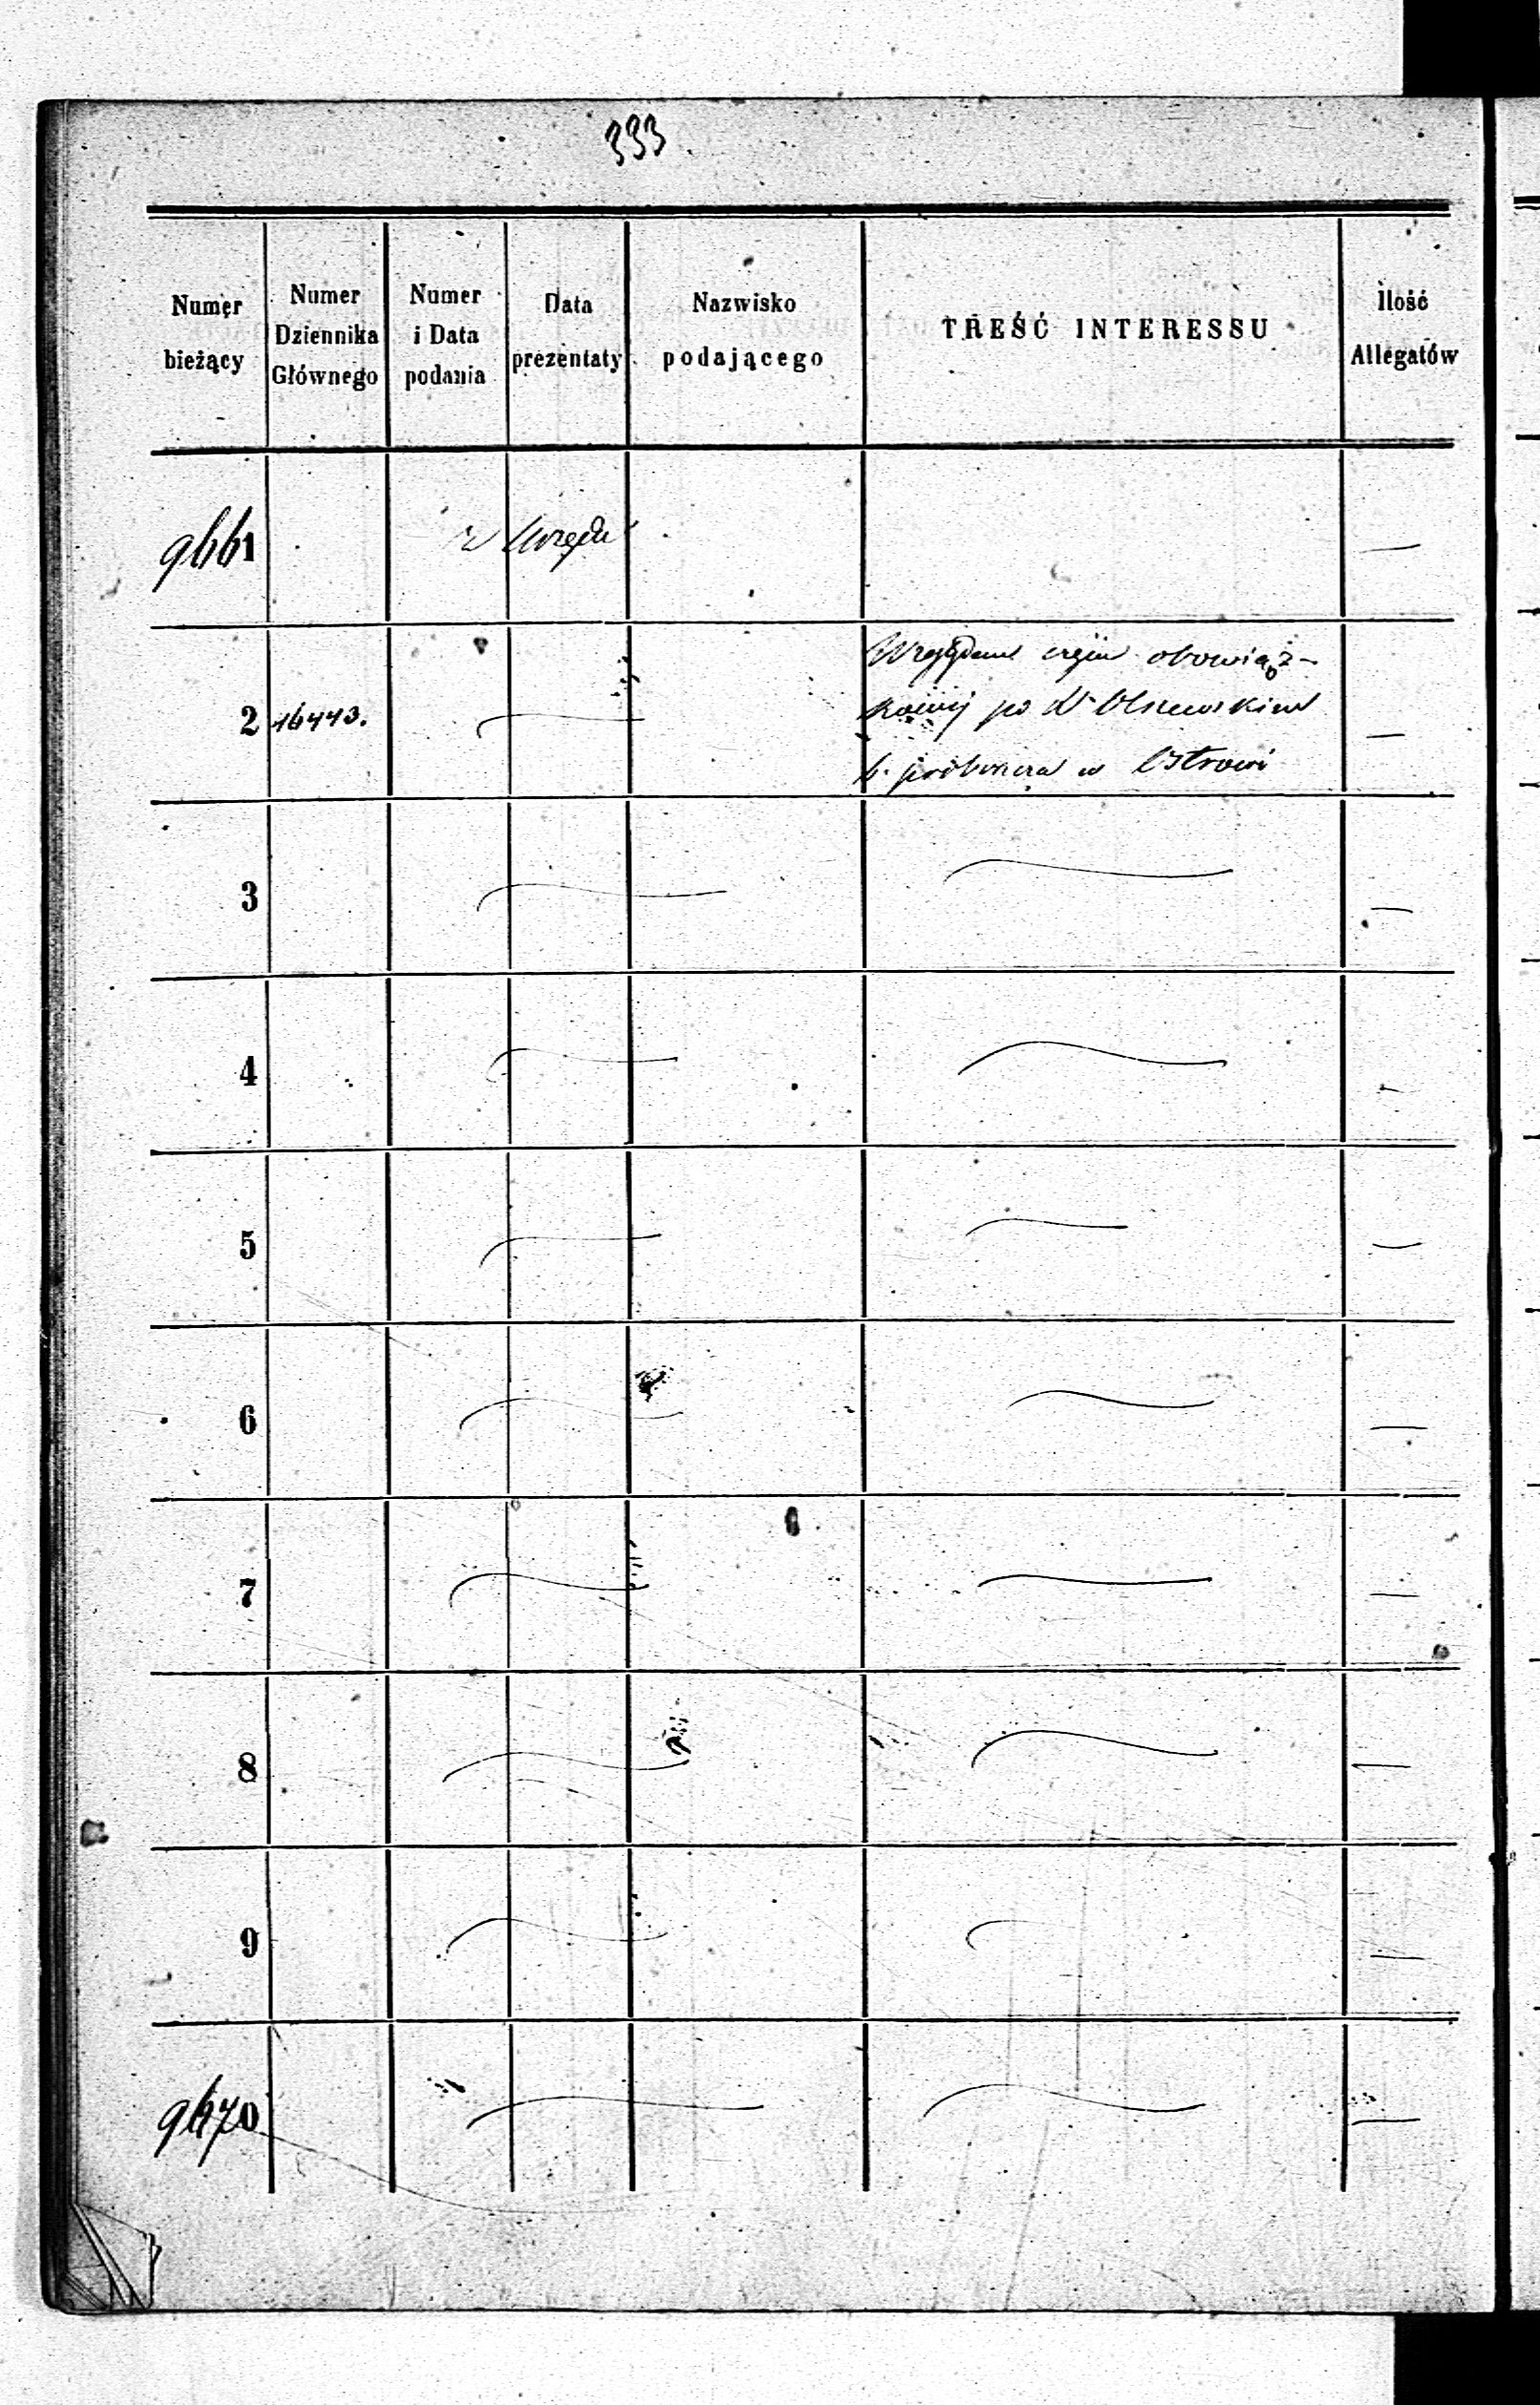 333
Numer bieżący
Numer Dziennika Głównego
Numer i Data podania
Data prezentaty
Nazwisko podającego
TREŚĆ INTERESSU
Ilość Allegatów
9661 z Urzędu —
Względem części obowiąz-
2 16443. kowej po X Olszewskim —
b. proboszczu w Ostrowi
3 —
4 —
5 —
6 —
7 —
8 —
9 —
9670 —